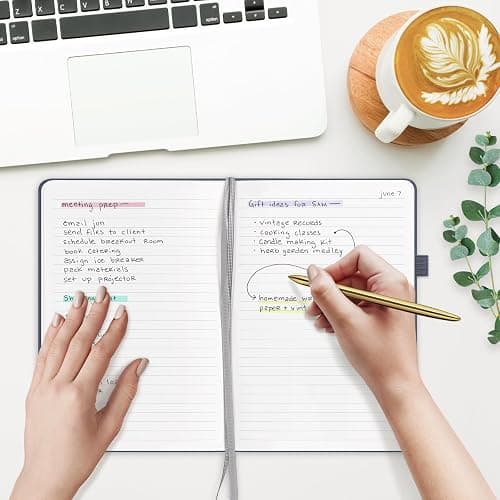 june 7
meeting prep
email jon
send files to client
schedule breakout room
book catering
assign ice breaker
pack materials
set up projector
Gift ideas for Sam
· vintage records
· cooking classes
· candle making kit
· herb garden medley
homemade
paper + vint